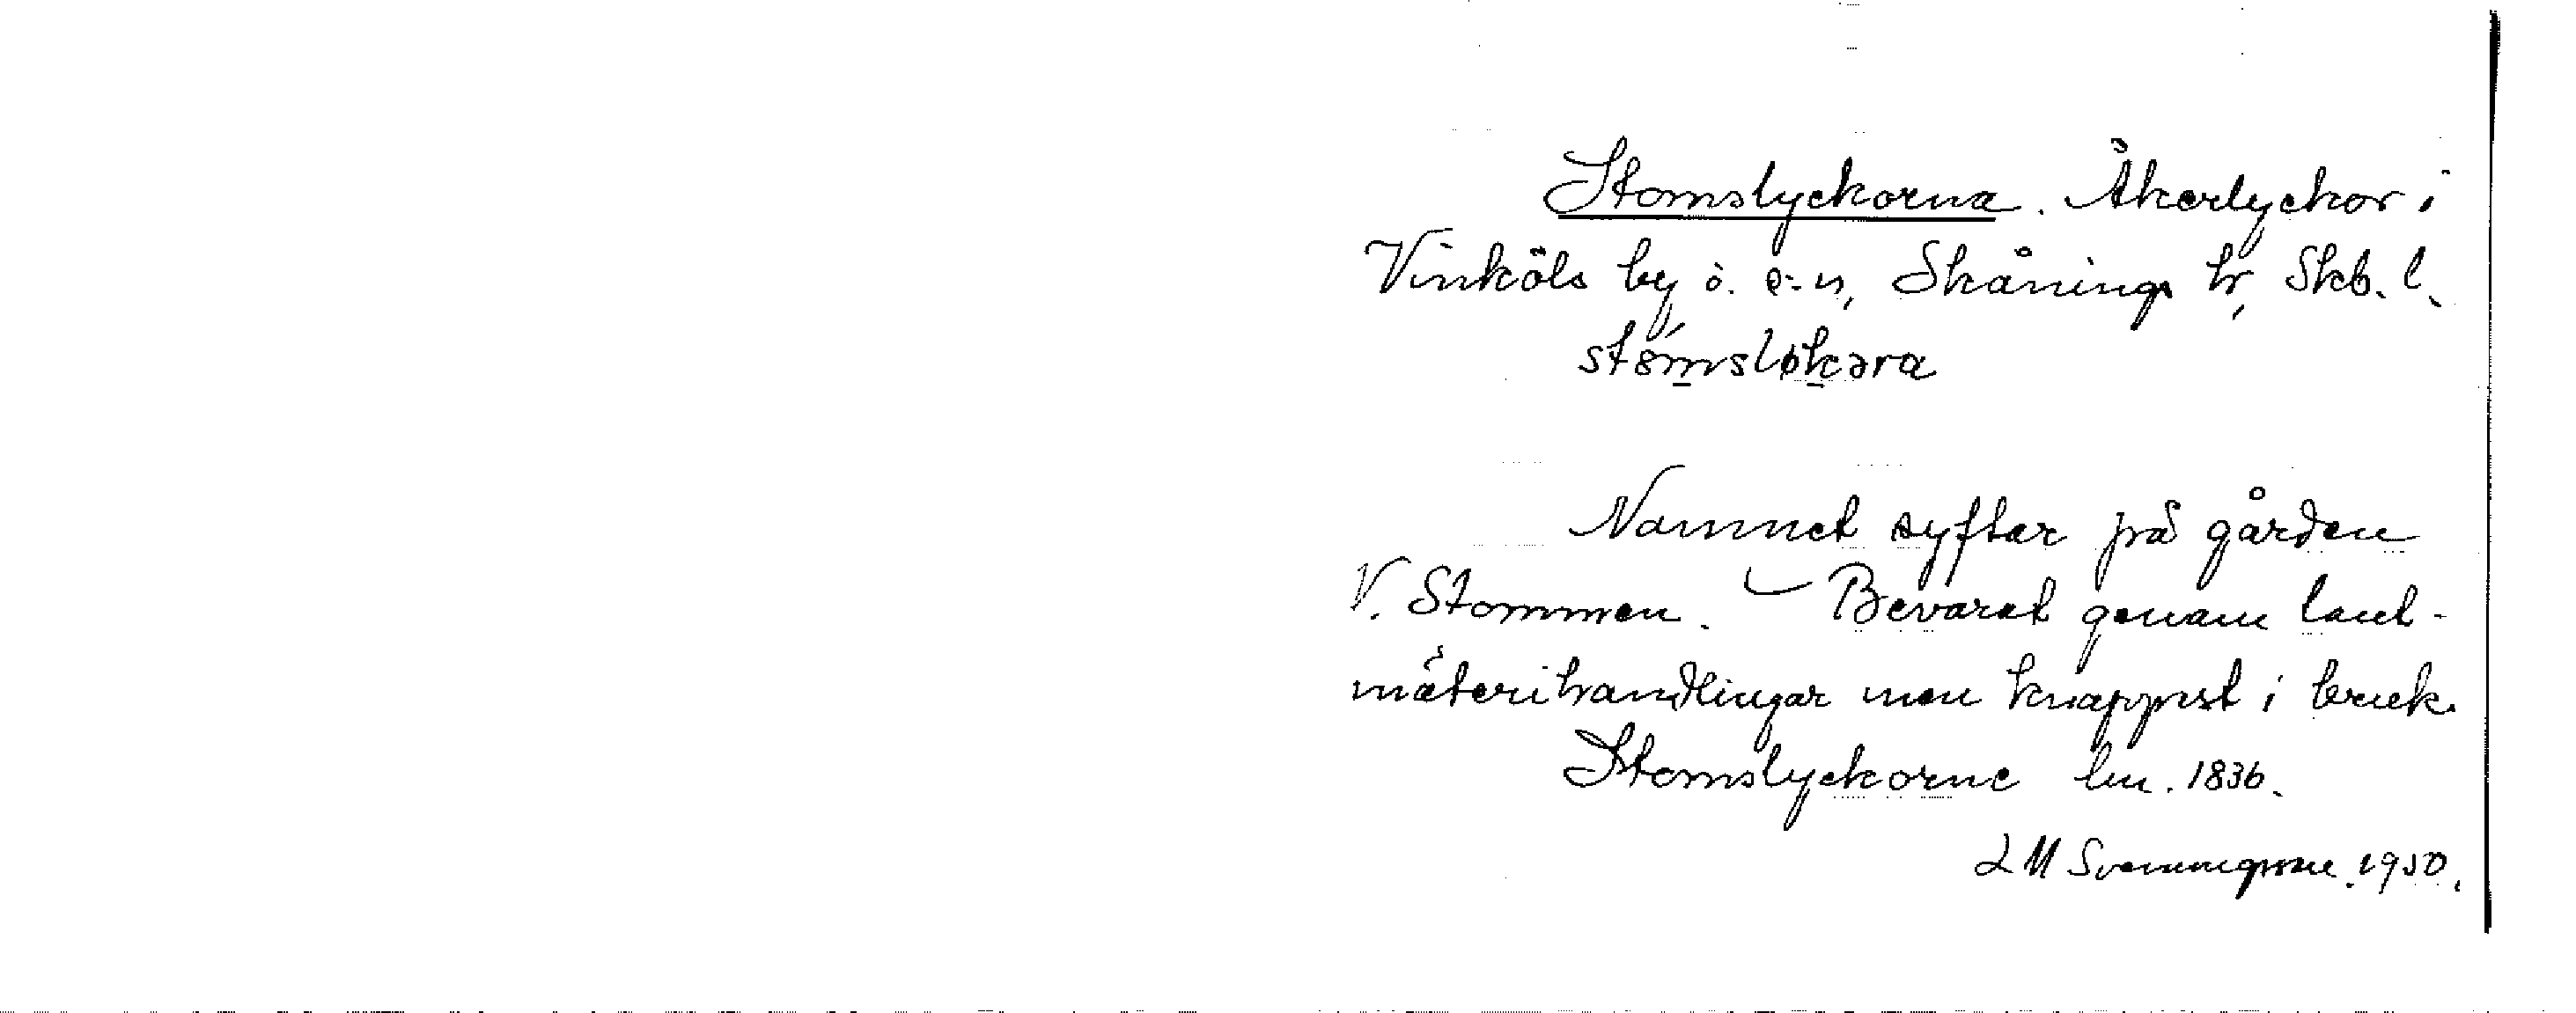 Stomslyckorna. Åkerlyckor i
Vinköls by o. s-n, Skånings hr, Skb. l.
stómsløkəra
Namnet syftar på gården
V. Stommen. – Bevarat genom lant-
mäterihandlingar men knappast i bruk.
Stomslyckorne lm. 1836.
1950.